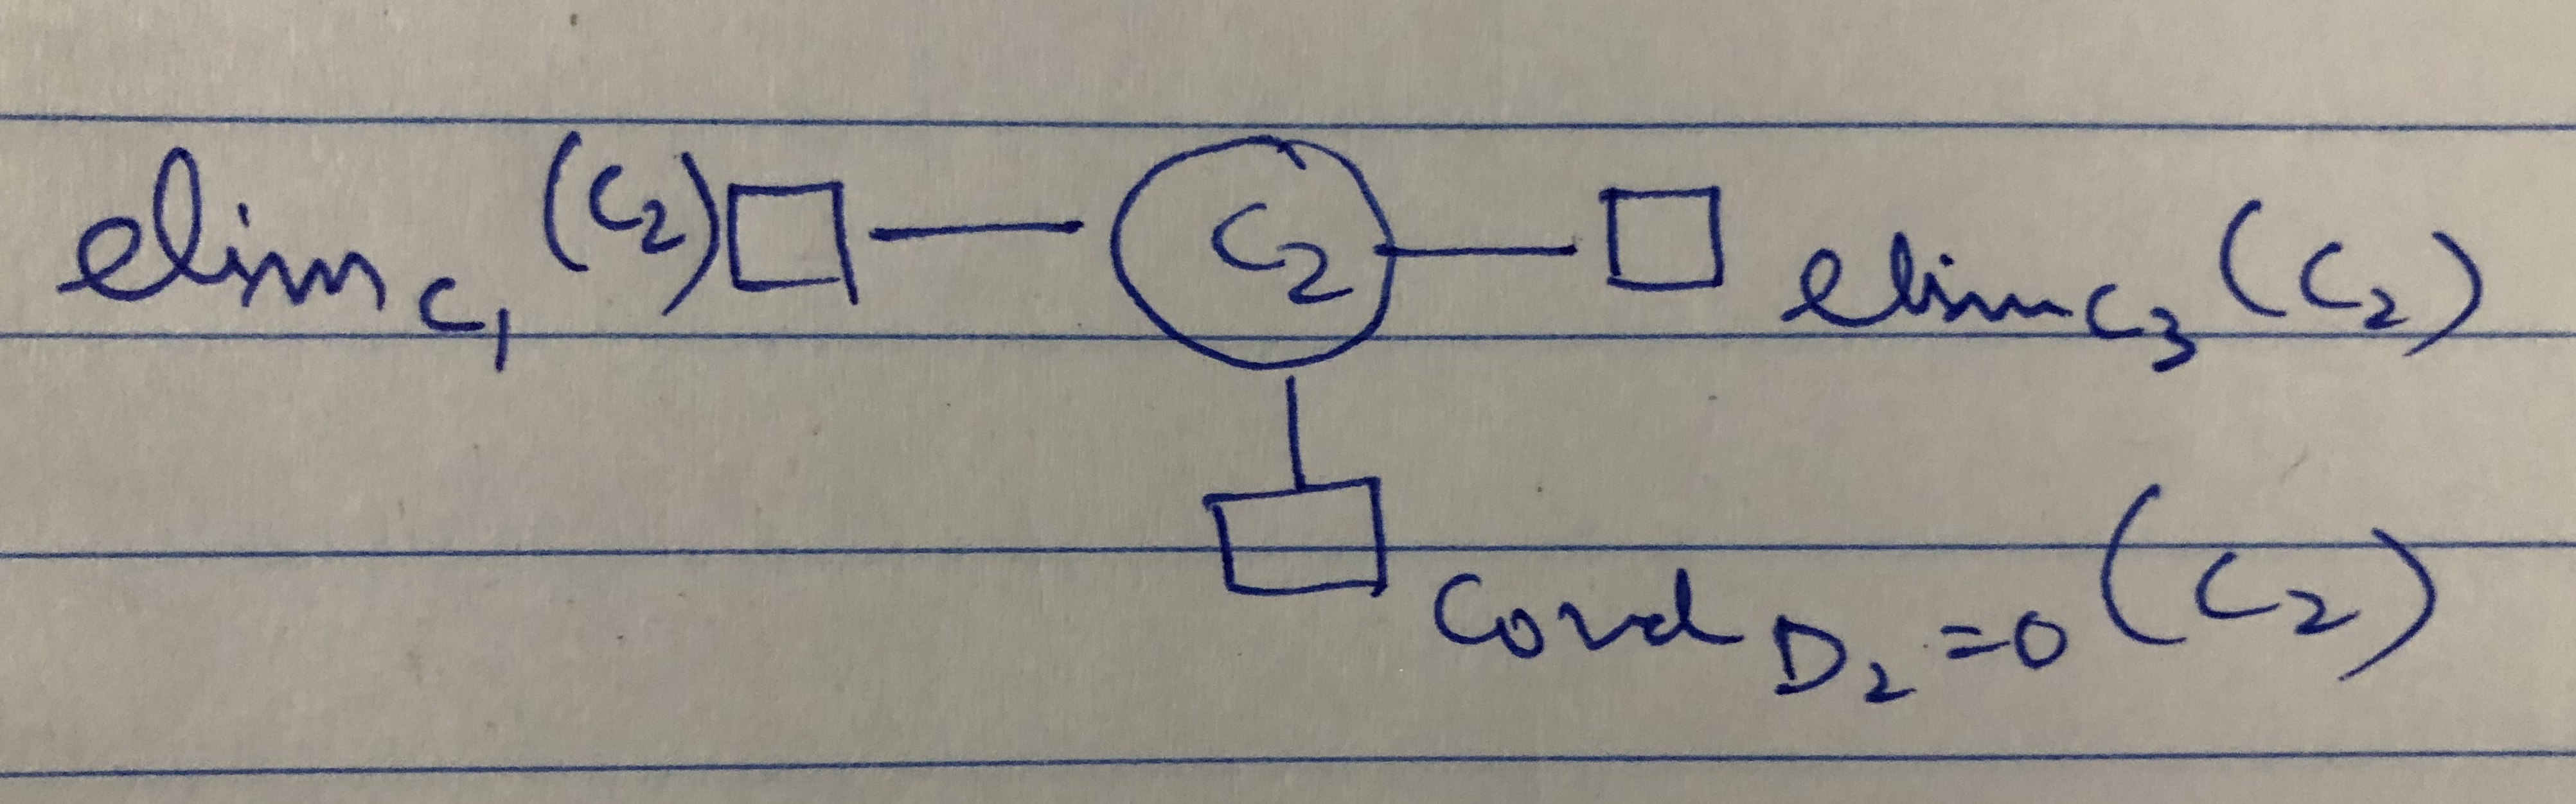 elim_{C_1}(C_2) C_2 elim_{C_3}(C_2)
Cond_{D_2=0}(C_2)